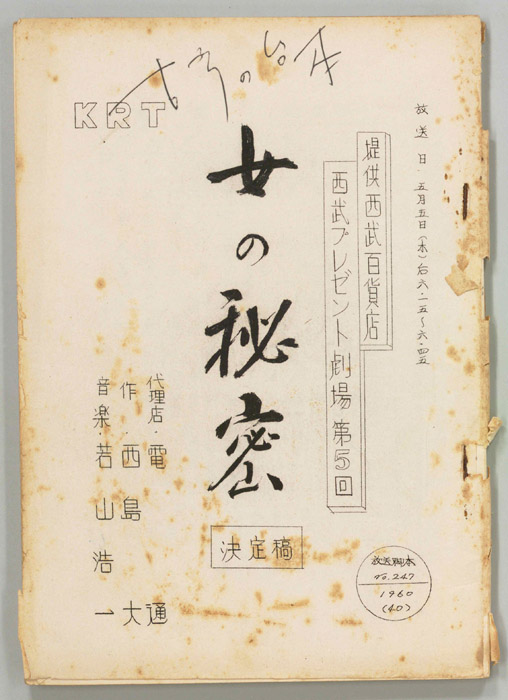 の台本
KRT
放送日・五月五日(木)后六・一五～六・四五
提供西武百貨店
西武プレゼント劇場 第5回
女の秘密
決定稿
代理店・電通
作・西島大
音楽・若山浩一
放送脚本
No.247
1960
(40)